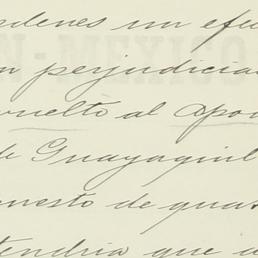 rdenes un efec
N-MEXICO
n perjudicia
vuelto al apo
de Guayaquil
uesto de gua
tendria que a